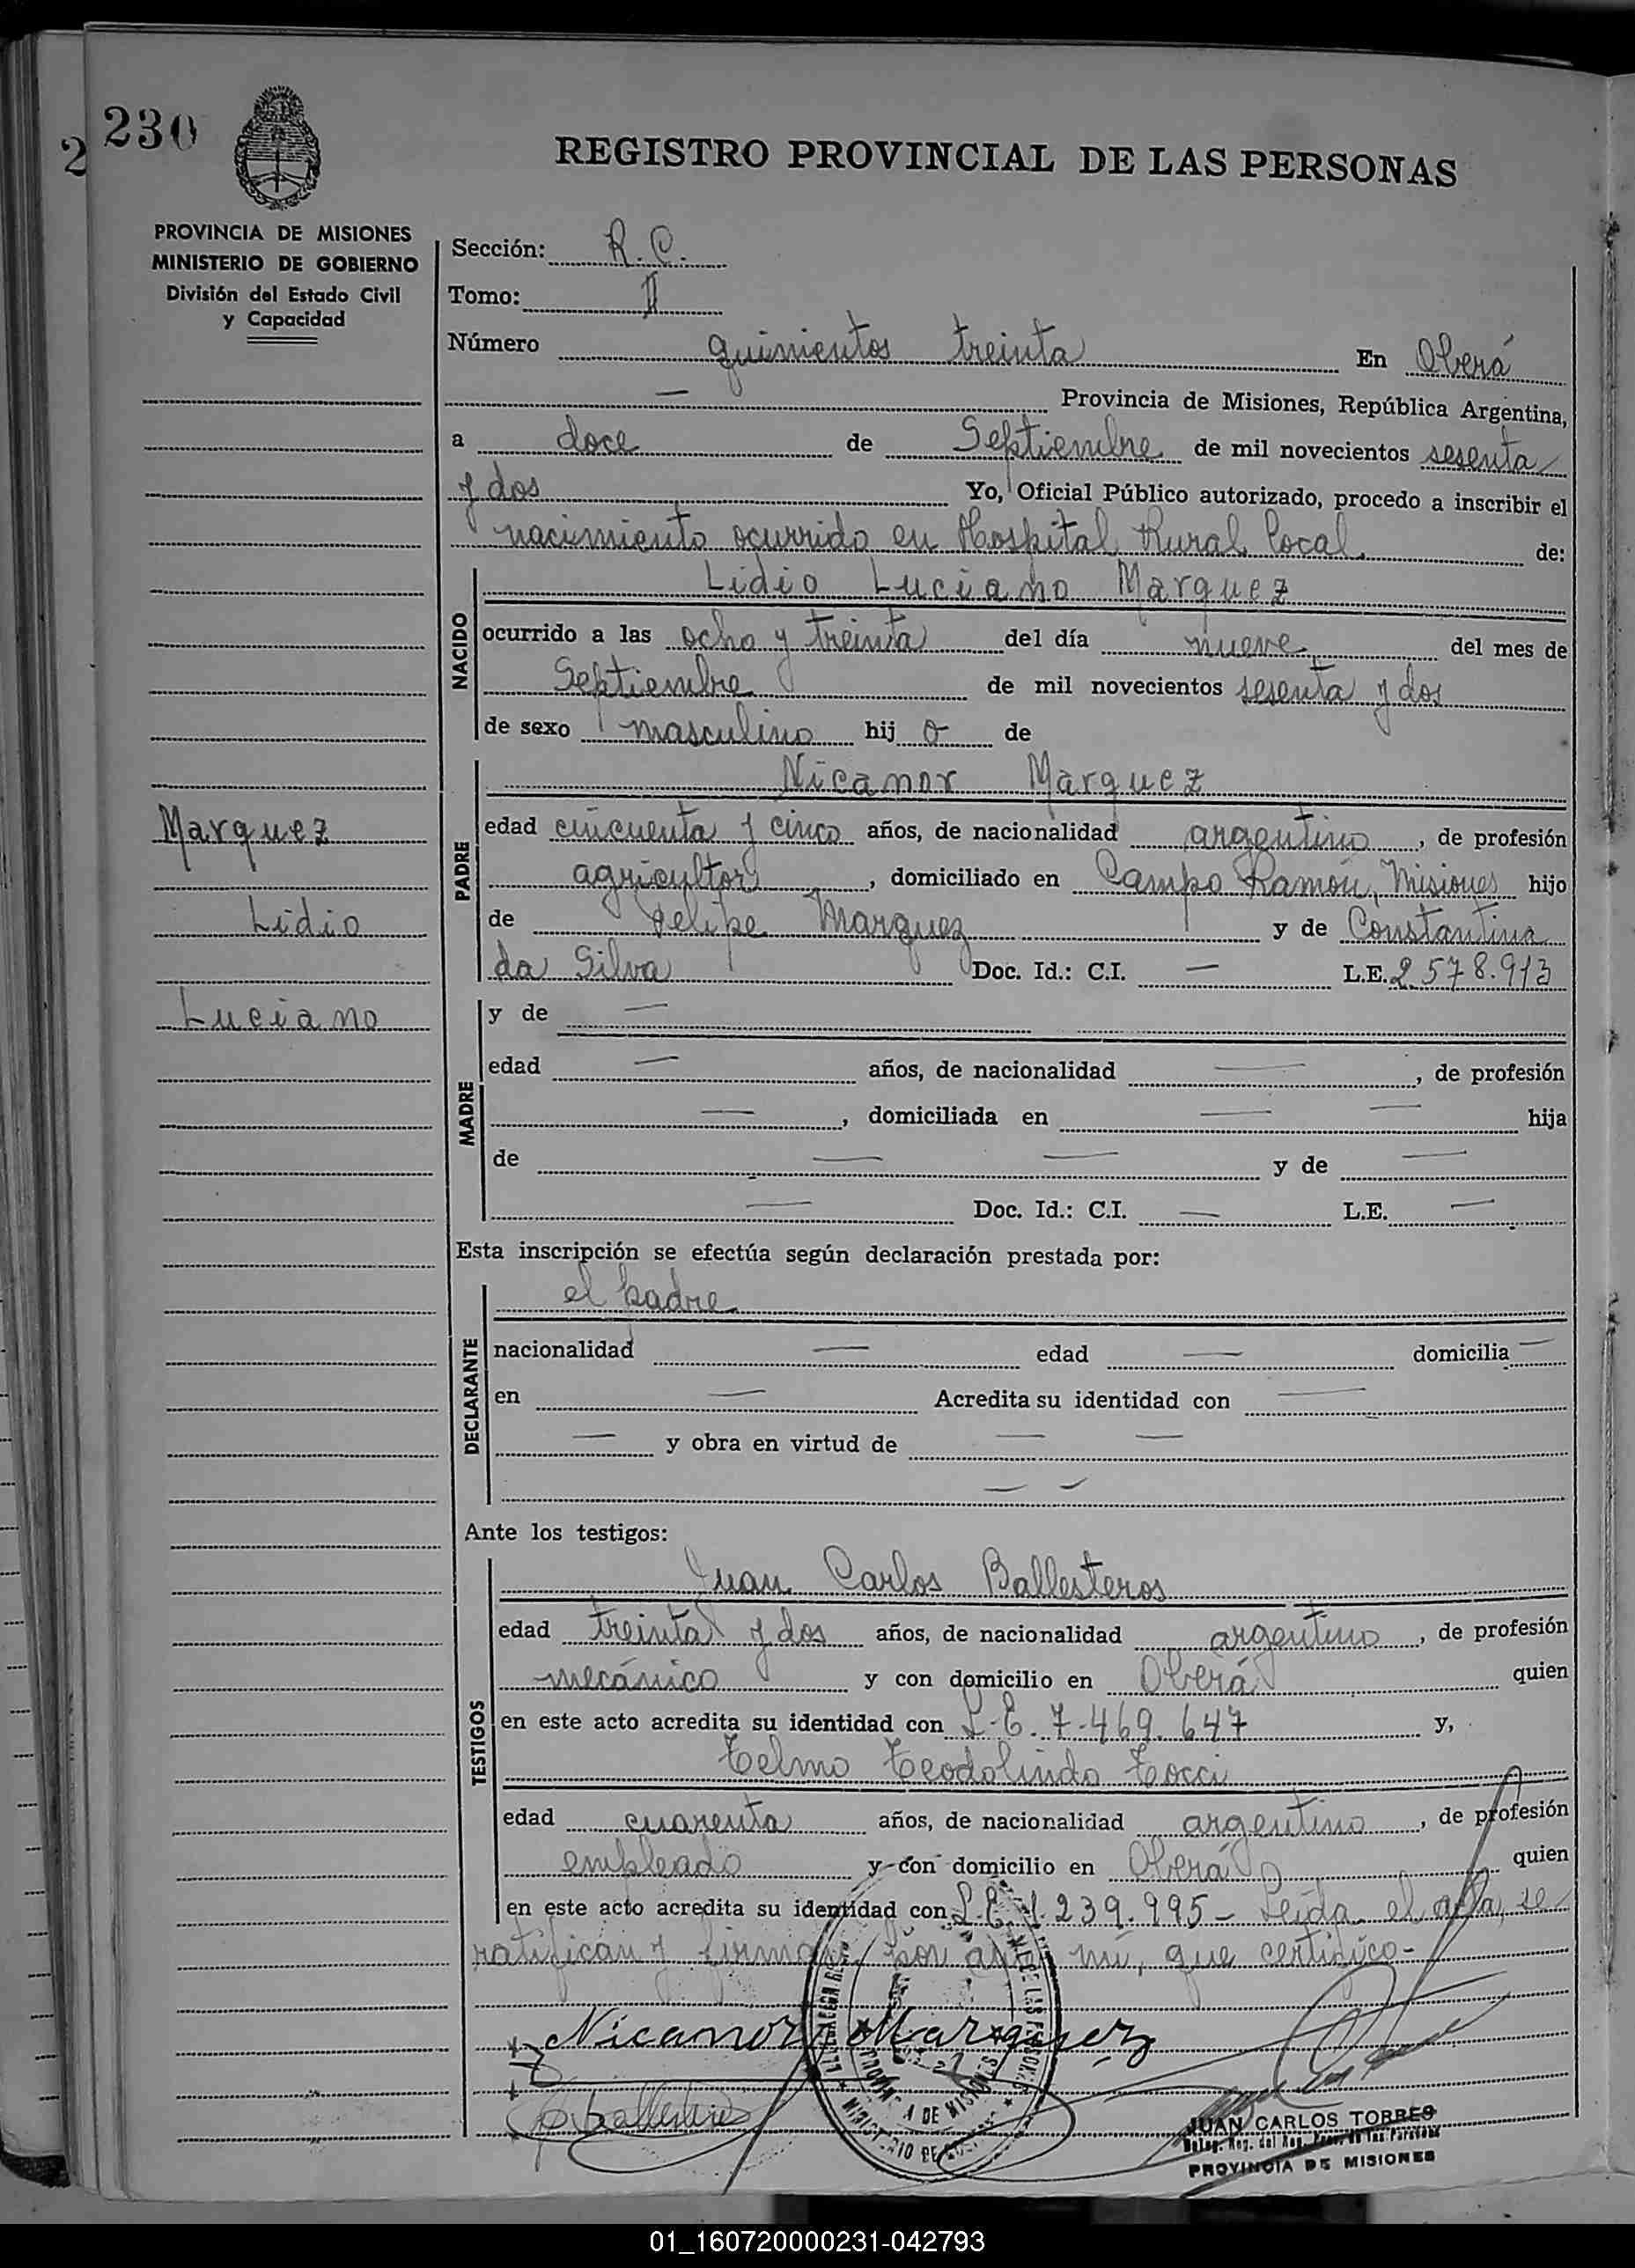 230
2
REGISTRO PROVINCIAL DE LAS PERSONAS
PROVINCIA DE MISIONES
MINISTERIO DE GOBIERNO
División del Estado Civil
y Capacidad
Marquez
Lidio
Luciano
Sección: R. C.
Tomo: II
Número quinientos treinta En Oberá
— Provincia de Misiones, República Argentina,
a doce de Septiembre de mil novecientos sesenta
y dos Yo, Oficial Público autorizado, procedo a inscribir el
nacimiento ocurrido en Hospital Rural Local. de:
NACIDO
Lidio Luciano Marquez
ocurrido a las ocho y treinta del día nueve del mes de
Septiembre de mil novecientos sesenta y dos
de sexo masculino hij o de
PADRE
Nicanor Marquez
edad cincuenta y cinco años, de nacionalidad argentino, de profesión
agricultor, domiciliado en Campo Ramón, Misiones hijo
de Felipe Marquez y de Constantina
da Silva Doc. Id.: C.I. — L.E. 2.578.913
MADRE
y de —
edad — años, de nacionalidad —, de profesión
—, domiciliada en — — hija
de — — y de —
— Doc. Id.: C.I. — L.E. —
Esta inscripción se efectúa según declaración prestada por:
DECLARANTE
el padre
nacionalidad — edad — domicilia —
en — Acredita su identidad con —
— y obra en virtud de — —
— —
Ante los testigos:
TESTIGOS
Juan Carlos Ballesteros
edad treinta y dos años, de nacionalidad argentino, de profesión
mecánico y con domicilio en Oberá quien
en este acto acredita su identidad con L.E. 7.469.647 y,
Telmo Teodolindo Tocci
edad cuarenta años, de nacionalidad argentino, de profesión
empleado y con domicilio en Oberá quien
en este acto acredita su identidad con L.E. 1.239.995 - Leída el acta, se
ratifican y firman por ante mí, que certifico-
Nicanor Marquez
JUAN CARLOS TORRES
PROVINCIA DE MISIONES
01_160720000231-042793